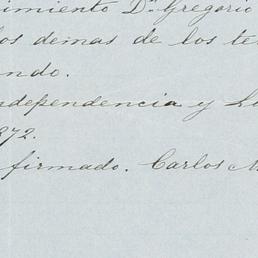 imiento Dn Gregorio
los demas de los te
ndo.
ndependencia y L
872.
firmado. Carlos M